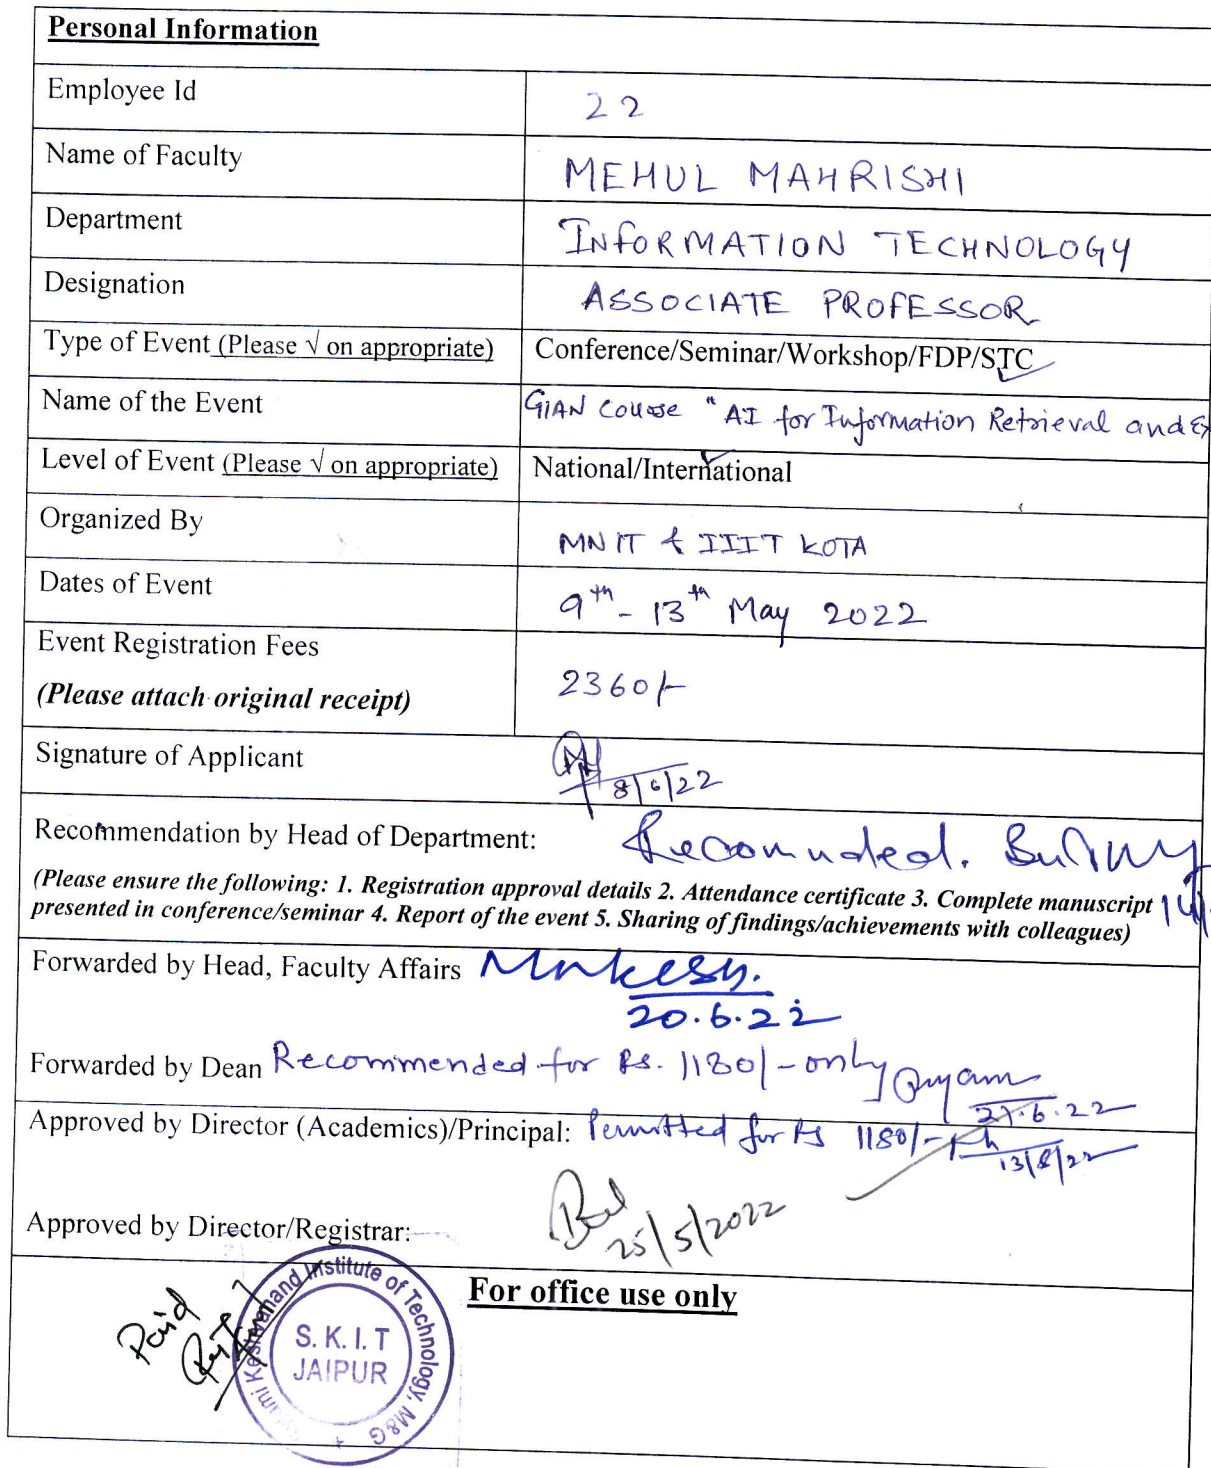 Personal Information
Employee Id 22
Name of Faculty MEHUL MAHRISHI
Department INFORMATION TECHNOLOGY
Designation ASSOCIATE PROFESSOR
Type of Event (Please √ on appropriate) Conference/Seminar/Workshop/FDP/STC
Name of the Event GIAN Course "AI for Information Retrieval and Ex
Level of Event (Please √ on appropriate) National/International
Organized By MNIT & IIIT KOTA
Dates of Event 9th - 13th May 2022
Event Registration Fees
(Please attach original receipt) 2360/-
Signature of Applicant 8/6/22
Recommendation by Head of Department: Recomnded.
(Please ensure the following: 1. Registration approval details 2. Attendance certificate 3. Complete manuscript
presented in conference/seminar 4. Report of the event 5. Sharing of findings/achievements with colleagues)
Forwarded by Head, Faculty Affairs Mukesh.
20.6.22
Forwarded by Dean Recommended for Rs. 1180/- only
27.6.22
Approved by Director (Academics)/Principal: Permitted for Rs 1180/-
Approved by Director/Registrar: 25/5/2022
For office use only
Paid
Keshvanand Institute of Technology, M&G
S. K. I. T
JAIPUR